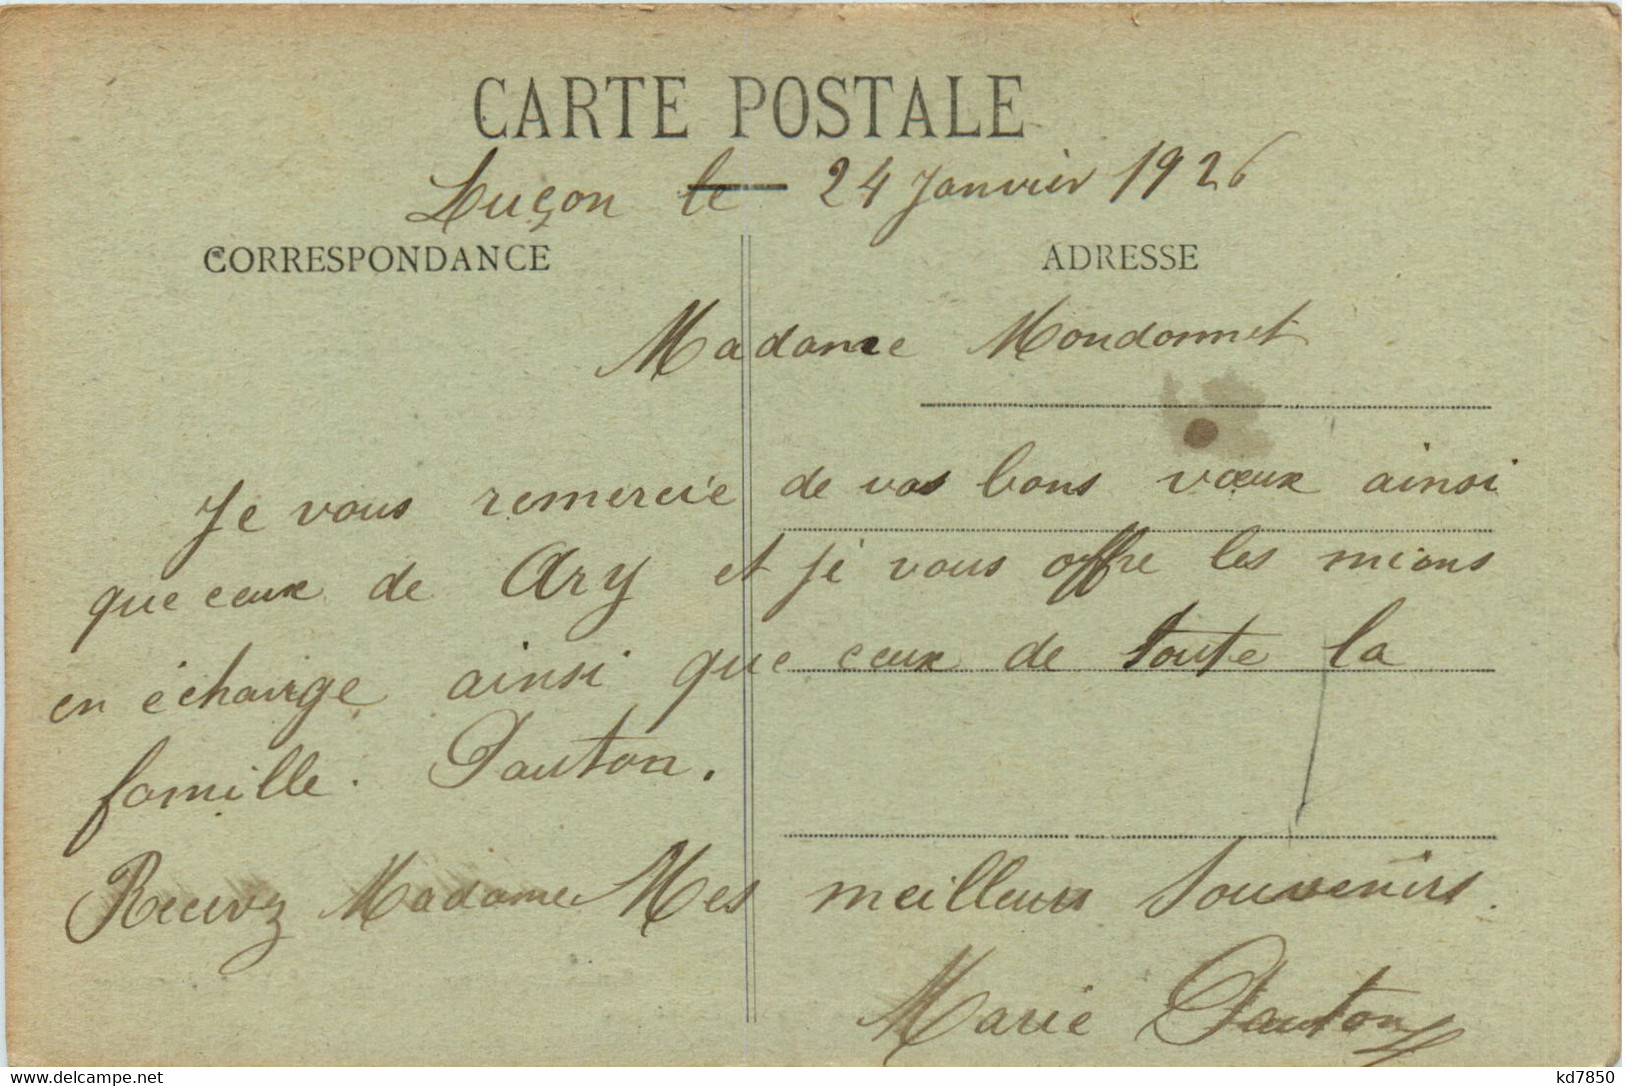 CARTE POSTALE
Luçon le 24 Janvier 1926
CORRESPONDANCE
ADRESSE
Madame Mondonnet
Je vous remercie de vos bons vœux ainsi
que ceux de Ary et je vous offre les miens
en échange ainsi que ceux de toute la
famille. Pauton.
Recevez Madame Mes meilleurs Souvenirs.
Marie Pauton
kd7850